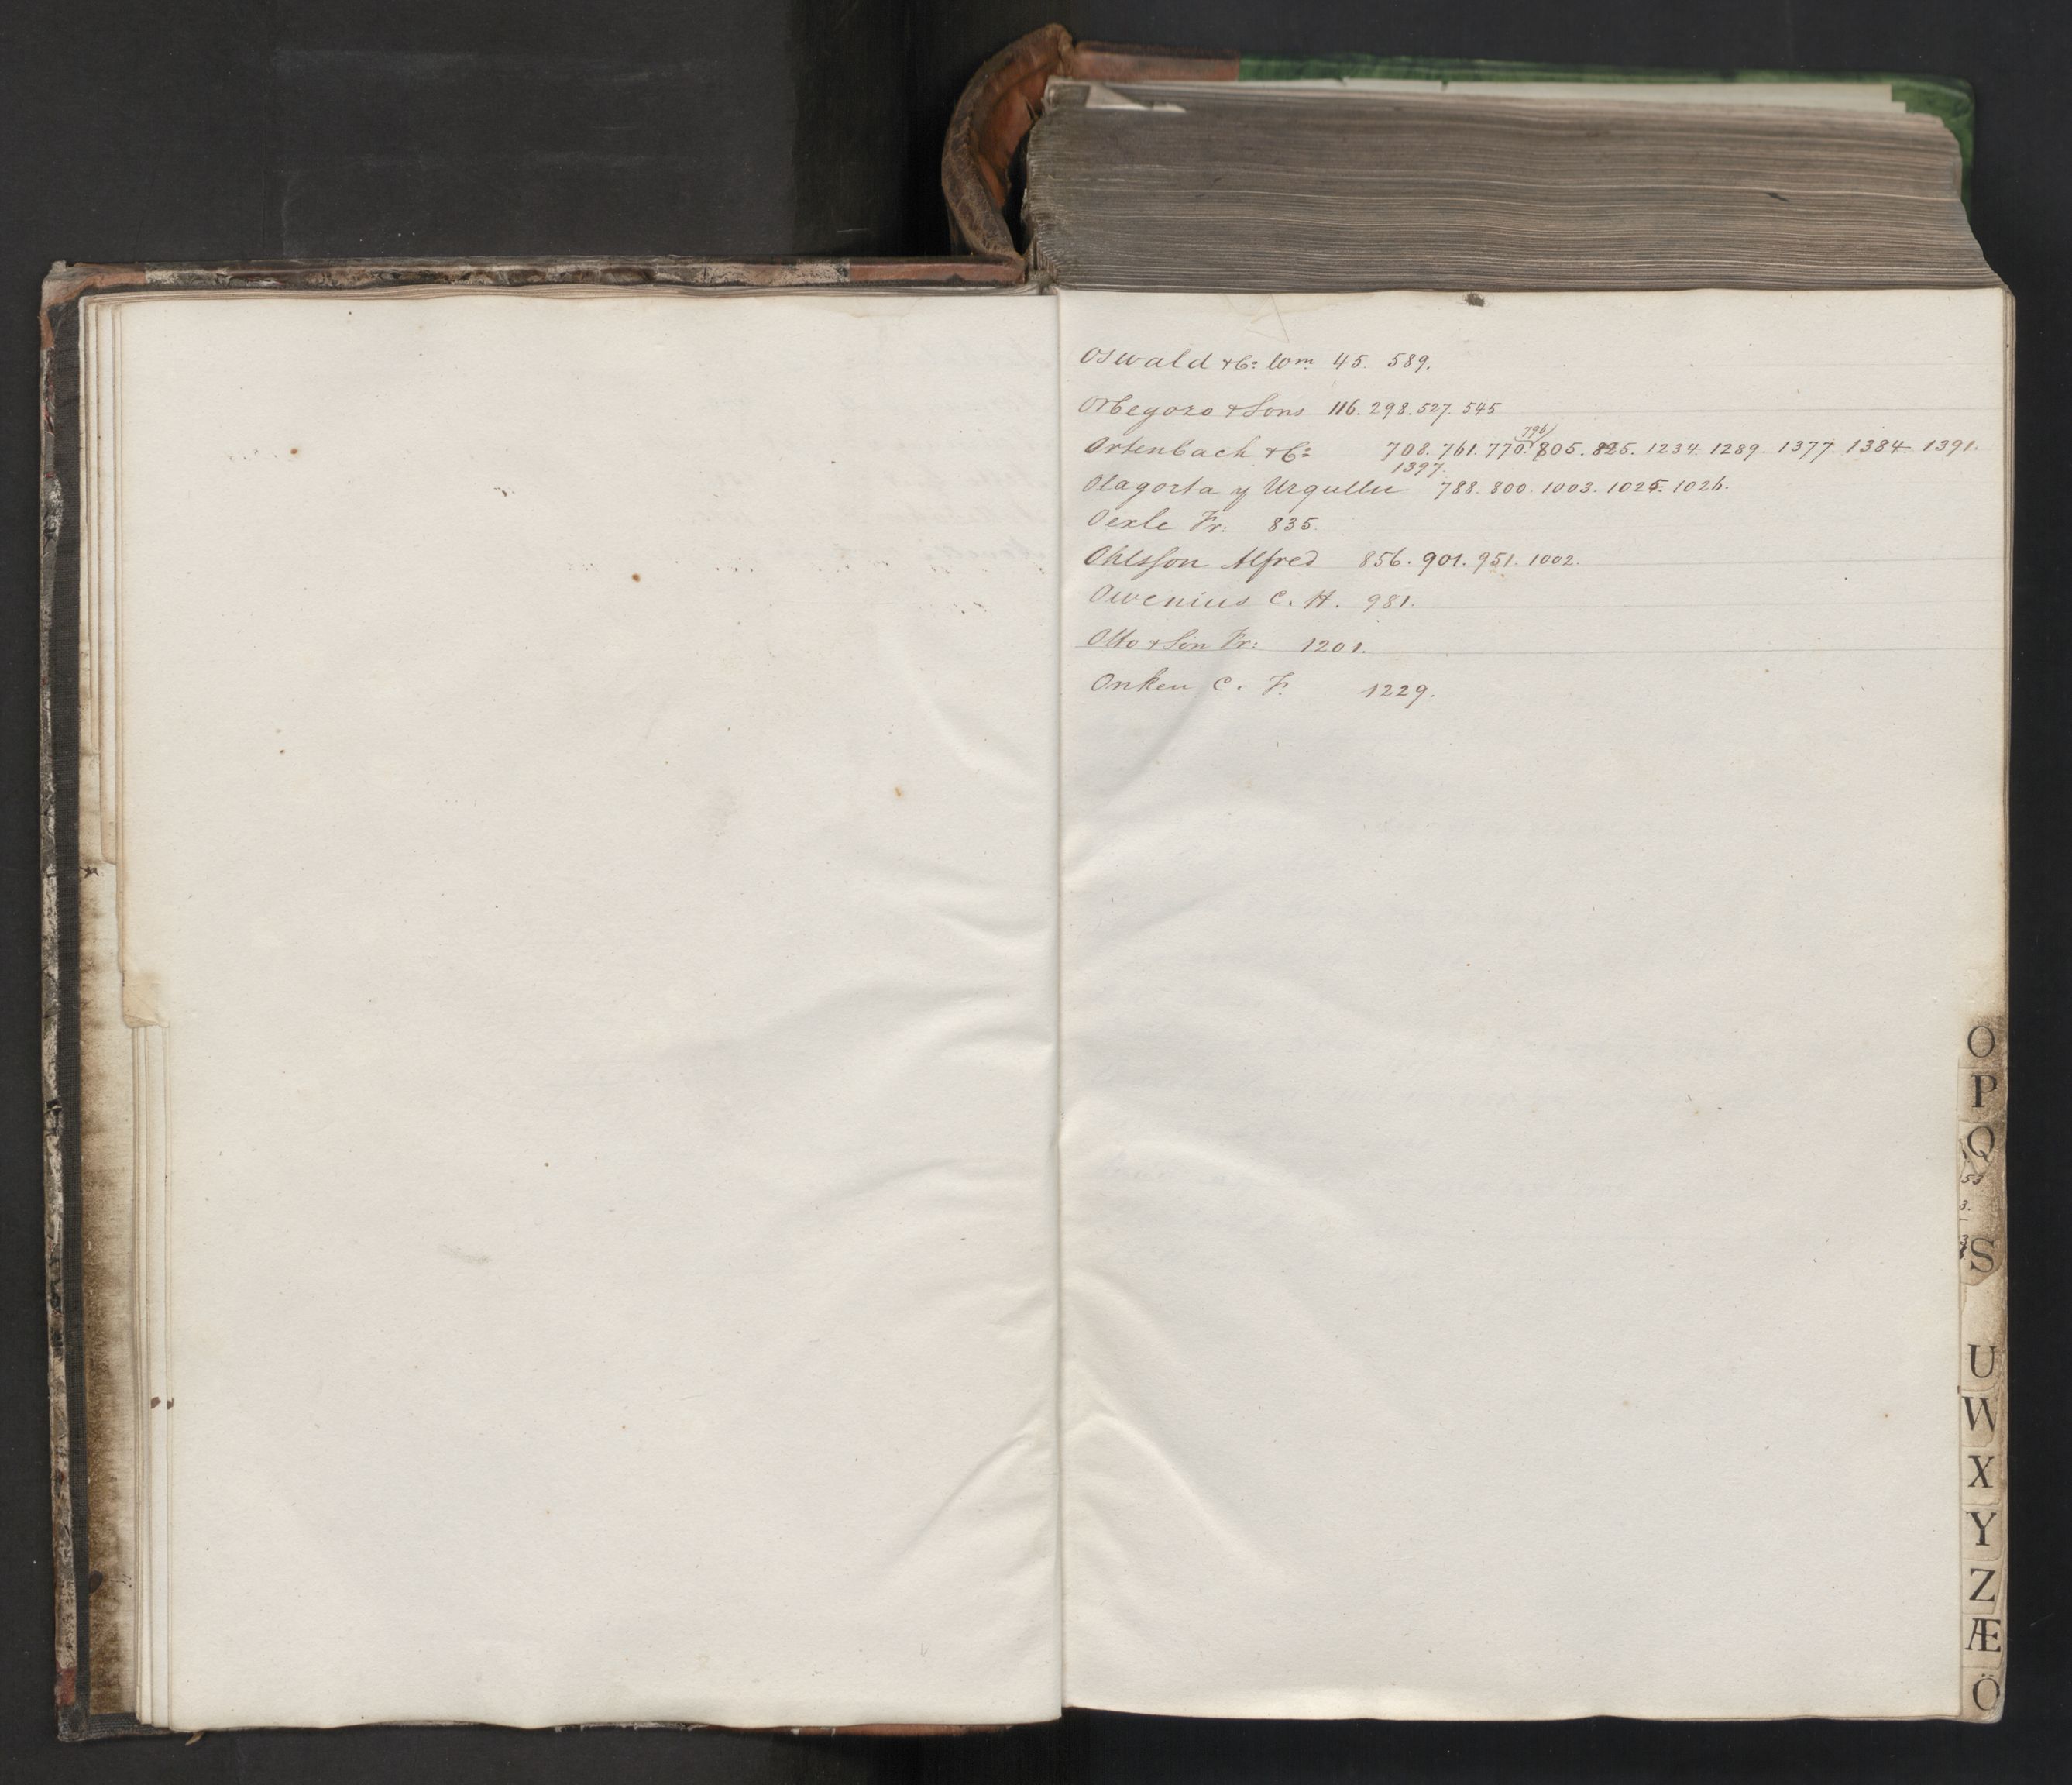 Oswald & Co: Wm. 45. 589.
Orbegozo & Sons 116. 298. 527. 545
796
Ortenbach & Co: 708. 761. 770. 805. 825. 1234. 1289. 1377. 1384. 1391.
1397.
Olagorta y Urgullu 788. 800. 1003. 1025. 1026.
Oexle Fr: 835.
Ohlsson Alfred 856. 901. 951. 1002.
Owenius C. H. 981.
Otto & Son Fr: 1201.
Onken C. F. 1229.
O
P
Q
53
3.
3
S
U
W
X
Y
Z
Æ
Ö